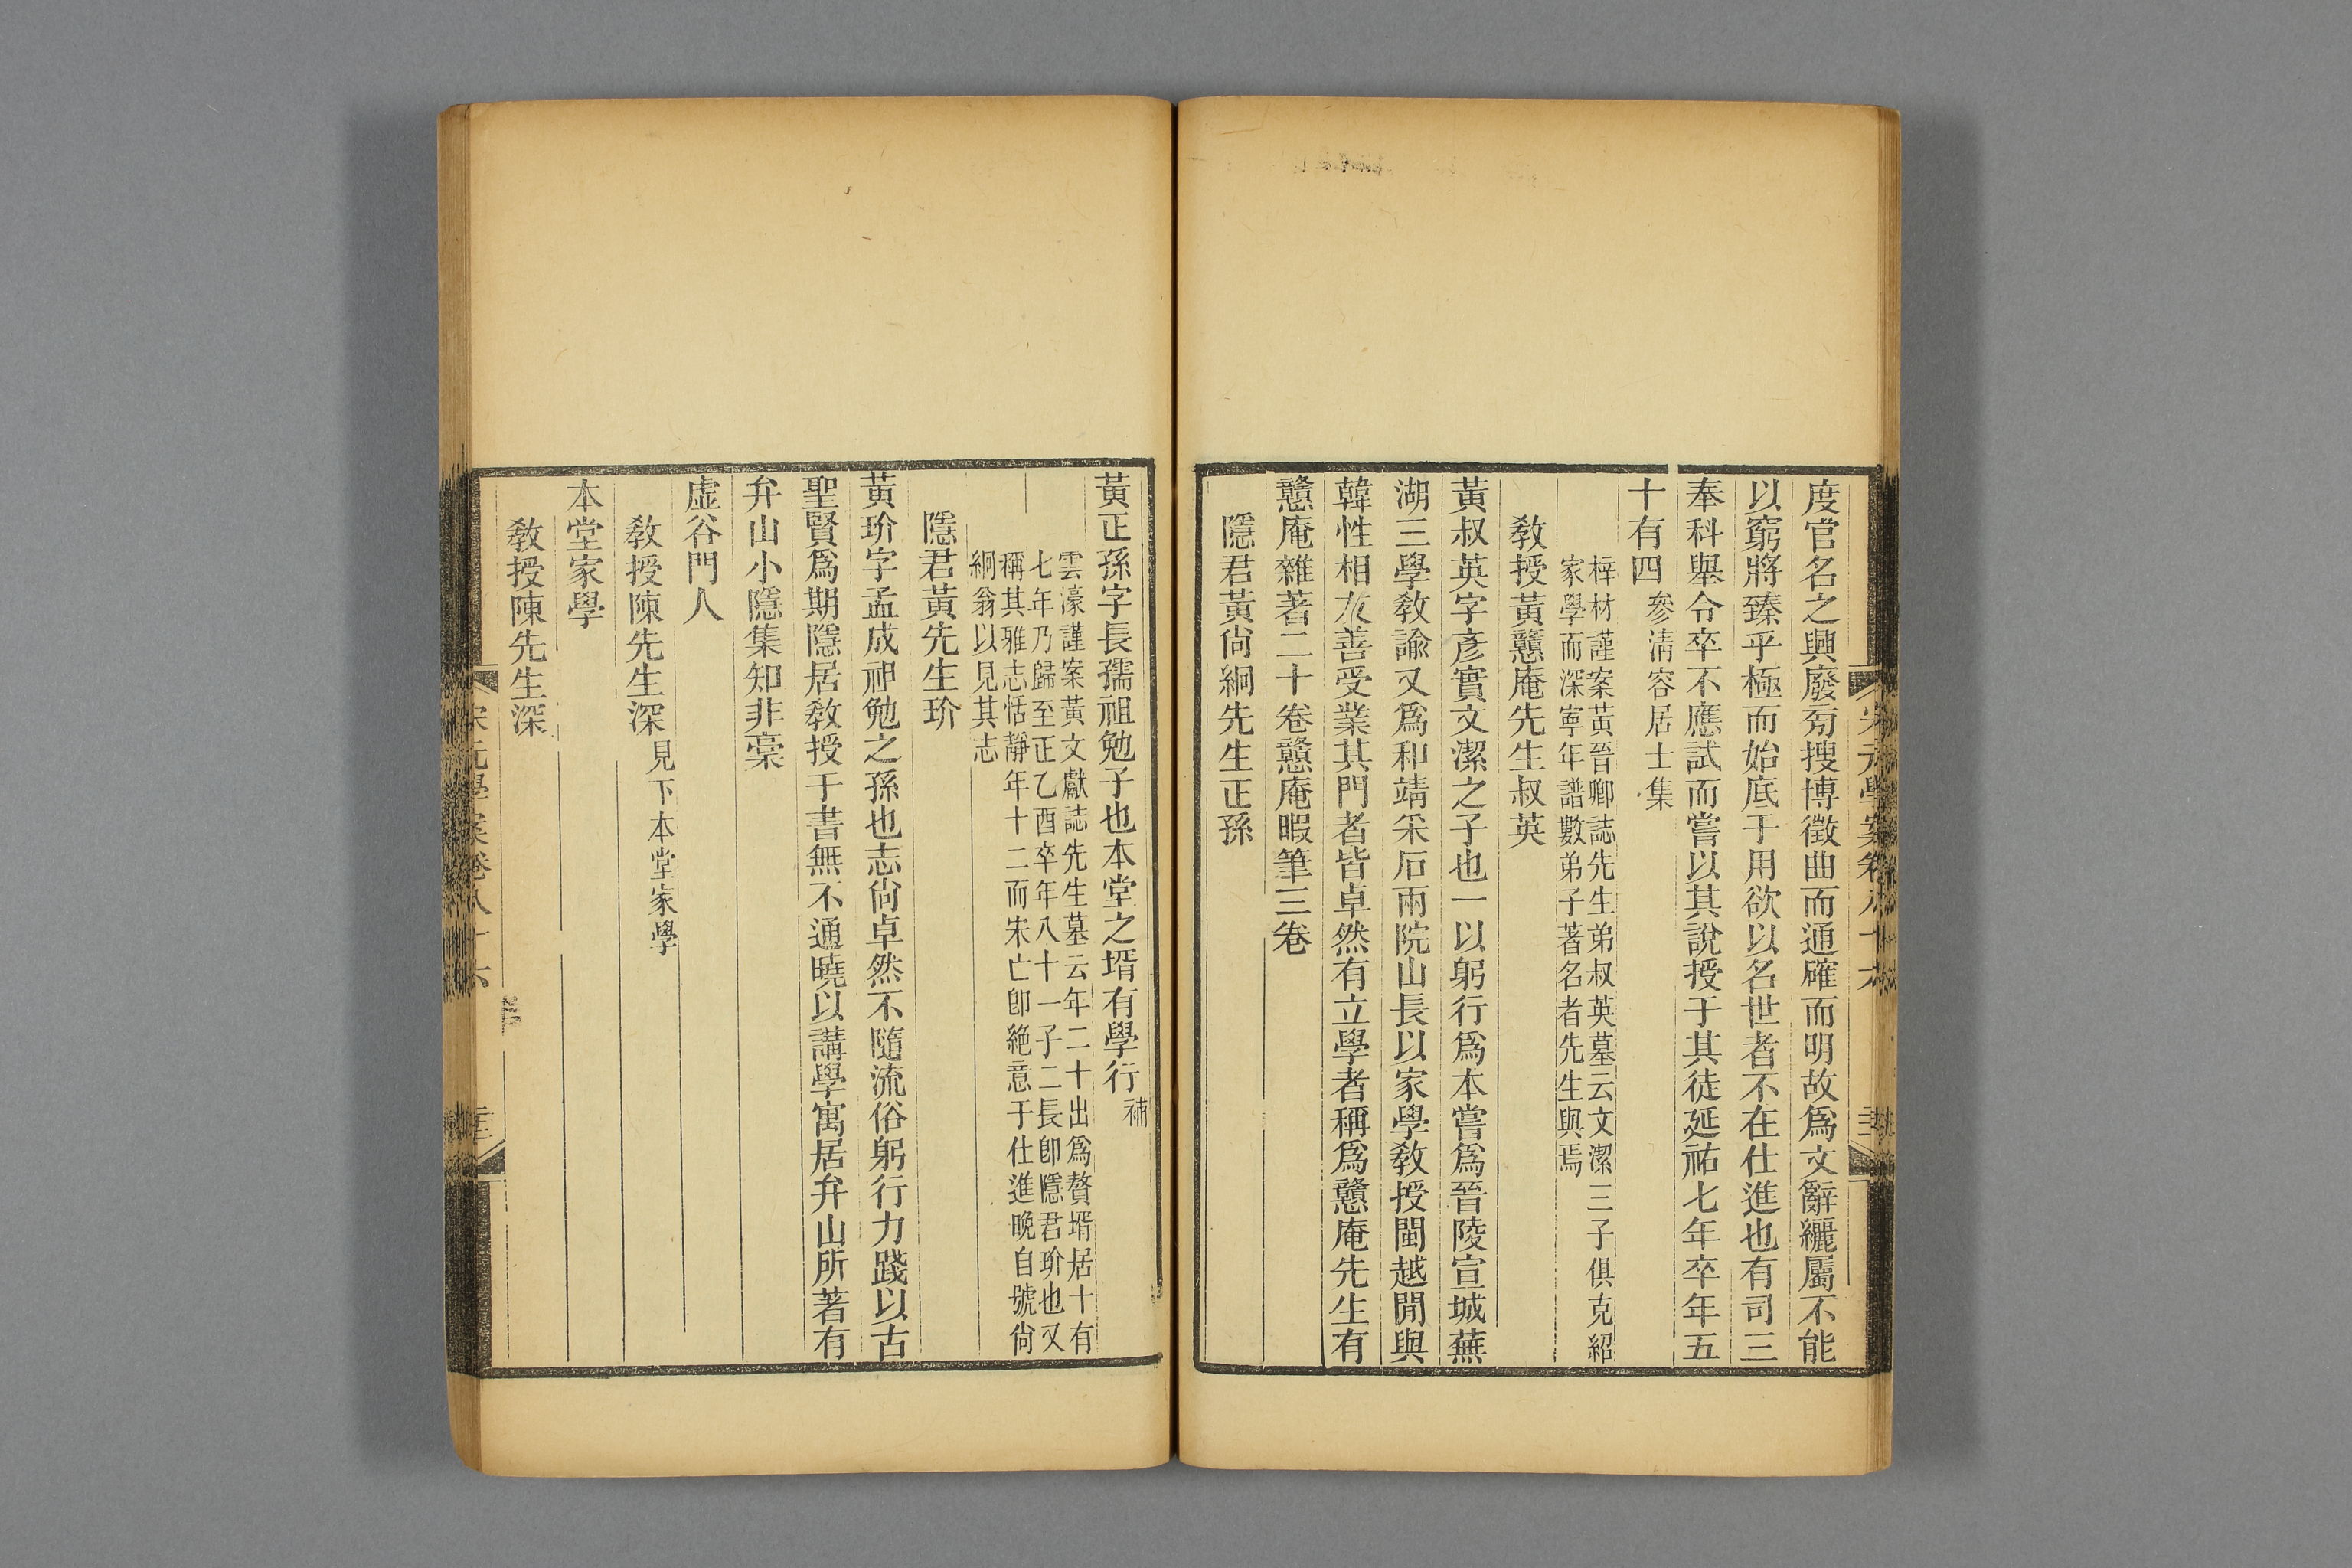 度官名之興廢菊搜博徵曲而通確而明故爲文辭纚屬不能
以窮將臻乎極而始底于用欲以名世者不在仕進也有司三
奉科舉令卒不應試而嘗以其說授于其徒延祐七年卒年五
十有四參淸容居士集
梓材謹案黃晉卿誌先生弟叔英墓云文潔三子俱克紹
家學而深寧年譜數弟子著名者先生與焉
敎授黃戇庵先生叔英
黃叔英字彥實文潔之子也一以躬行爲本嘗爲晉陵宣城蕪
湖三學敎諭又爲和靖采石兩院山長以家學敎授閩越閒與
韓性相友善受業其門者皆卓然有立學者稱爲戇庵先生有
戇庵雜著二十卷戇庵暇筆三卷
隱君黃尙絅先生正孫
宋元學案卷八十六
黃正孫字長孺祖勉子也本堂之壻有學行補
雲濠謹案黃文獻誌先生墓云年二十出爲贅壻居十有
七年乃歸至正乙酉卒年八十一子二長卽隱君玠也又
稱其雅志恬靜年十二而宋亡卽絶意于仕進晚自號尙
絅翁以見其志
隱君黃先生玠
黃玠字孟成祖勉之孫也志尙卓然不隨流俗躬行力踐以古
聖賢爲期隱居敎授于書無不通曉以講學寓居弁山所著有
弁山小隱集知非稾
虛谷門人
敎授陳先生深見下本堂家學
本堂家學
敎授陳先生深
宋元學案卷八十六